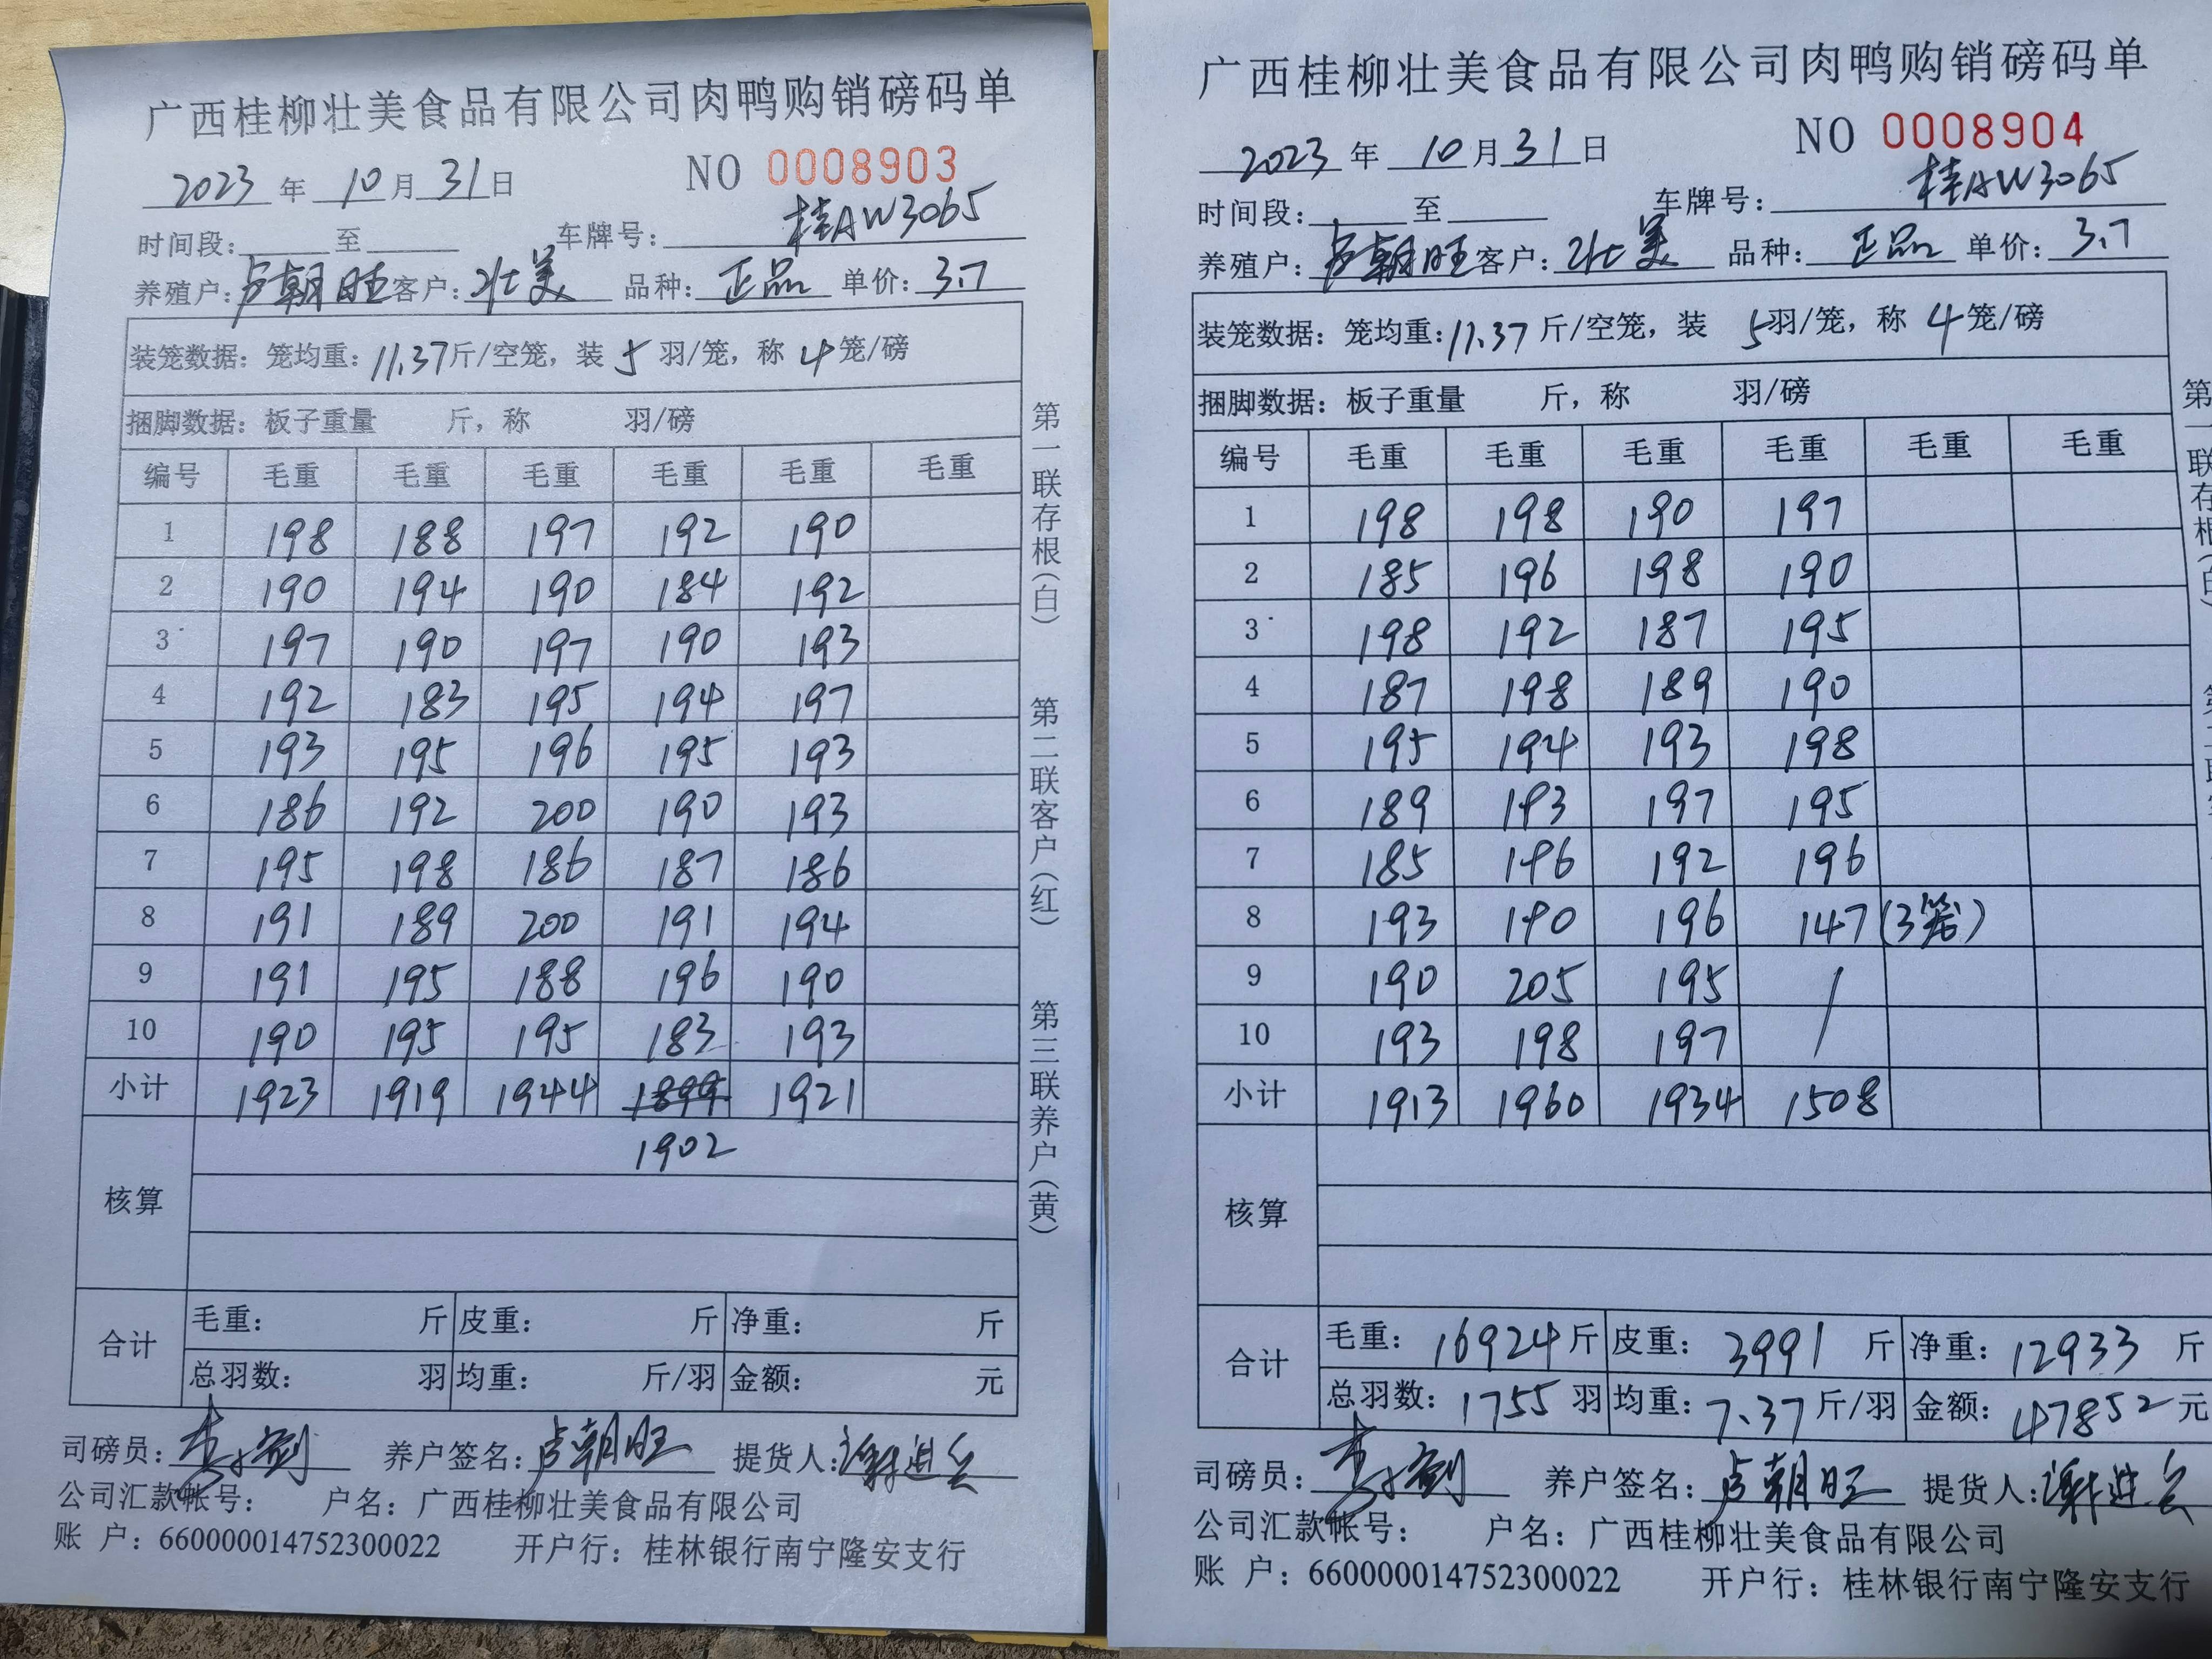 广西桂柳壮美食品有限公司肉鸭购销磅码单
2023 年 10 月 31 日 NO 0008903
时间段: 至 车牌号: 桂AW3065
养殖户: 卢朝旺 客户: 壮美 品种: 正品 单价: 3.7
装笼数据: 笼均重: 11.37 斤/空笼, 装 5 羽/笼, 称 4 笼/磅
捆脚数据: 板子重量 斤, 称 羽/磅
编号 毛重 毛重 毛重 毛重 毛重 毛重
1 198 188 197 192 190
2 190 194 190 184 192
3 197 190 197 190 193
4 192 183 195 194 197
5 193 195 196 195 193
6 186 192 200 190 193
7 195 198 186 187 186
8 191 189 200 191 194
9 191 195 188 196 190
10 190 195 195 183 193
小计 1923 1919 1944 1899 1921
1902
核算
合计
毛重: 斤 皮重: 斤 净重: 斤
总羽数: 羽 均重: 斤/羽 金额: 元
司磅员: 养户签名: 卢朝旺 提货人:
公司汇款帐号: 户名: 广西桂柳壮美食品有限公司
账 户: 660000014752300022 开户行: 桂林银行南宁隆安支行
第一联存根(白) 第二联客户(红) 第三联养户(黄)
广西桂柳壮美食品有限公司肉鸭购销磅码单
2023 年 10 月 31 日 NO 0008904
时间段: 至 车牌号: 桂AW3065
养殖户: 卢朝旺 客户: 壮美 品种: 正品 单价: 3.7
装笼数据: 笼均重: 11.37 斤/空笼, 装 5 羽/笼, 称 4 笼/磅
捆脚数据: 板子重量 斤, 称 羽/磅
编号 毛重 毛重 毛重 毛重 毛重 毛重
1 198 198 190 197
2 185 196 198 190
3 198 192 187 195
4 187 198 189 190
5 195 194 193 198
6 189 193 197 195
7 185 196 192 196
8 193 190 196 147 (3笼)
9 190 205 195 /
10 193 198 197 /
小计 1913 1960 1934 1508
核算
合计
毛重: 16924 斤 皮重: 3991 斤 净重: 12933 斤
总羽数: 1755 羽 均重: 7.37 斤/羽 金额: 47852 元
司磅员: 养户签名: 卢朝旺 提货人:
公司汇款帐号: 户名: 广西桂柳壮美食品有限公司
账 户: 660000014752300022 开户行: 桂林银行南宁隆安支行